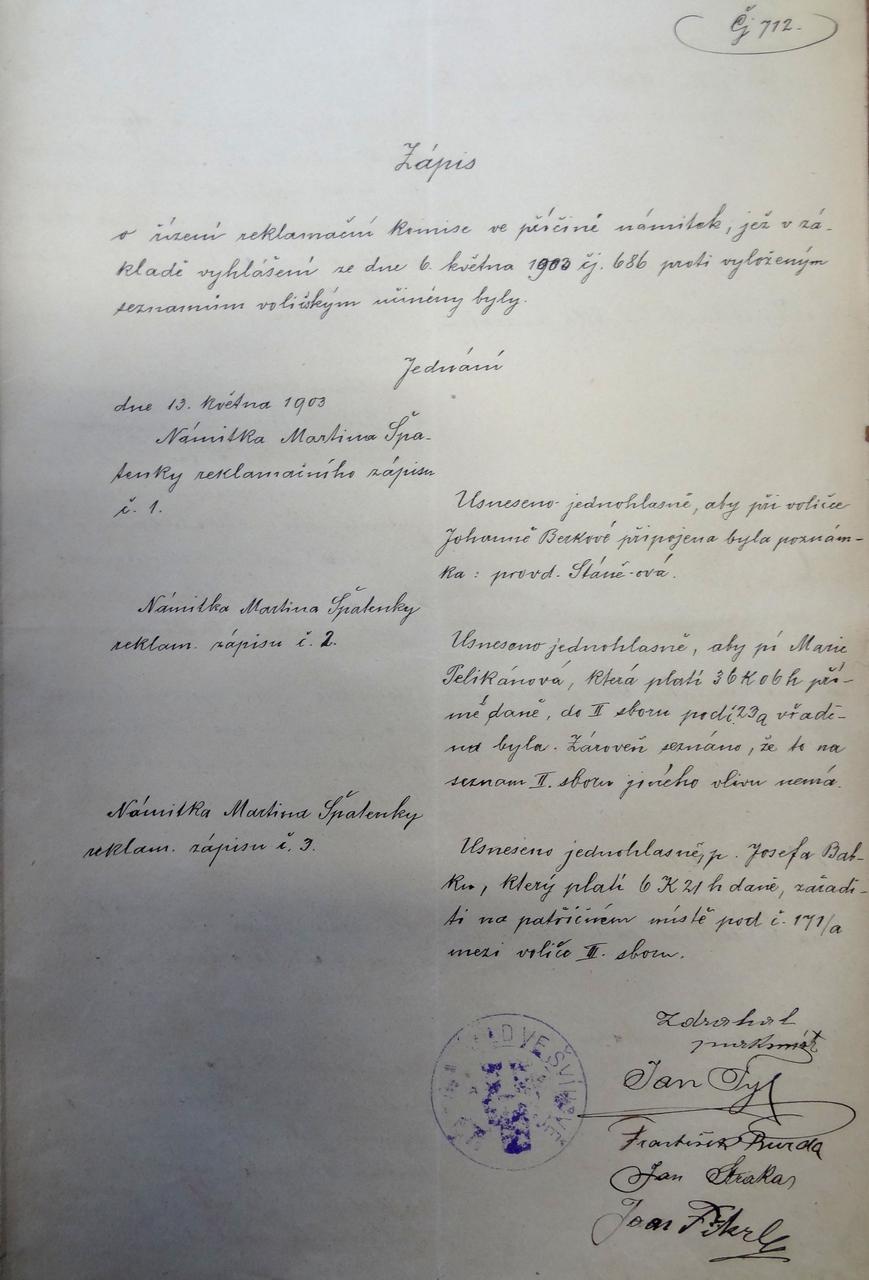 Čj 712.
Zápis
o řízení reklamační komise ve příčině námitek, jež v zá-
kladě vyhlášení ze dne 6. května 1903 čj. 686 proti vyloženým
seznamům voličským učiněny byly.
Jednání
dne 13. května 1903
Námitka Martina Špa-
tenky reklamačního zápisu
č. 1.
Usneseno jednohlasně, aby při voličce
Johanně Berkové připojena byla poznám-
ka: provd. Stáně-ová.
Námitka Martina Špatenky
reklam. zápisu č. 2.
Usneseno jednohlasně, aby pí Marie
Pelikánová, která platí 36 K 06 h pří-
mé daně, do II sboru pod č. 23a vřadě-
na byla. Zároveň seznáno, že to na
seznam II. sboru jiného vlivu nemá.
Námitka Martina Špatenky
reklam. zápisu č. 3.
Usneseno jednohlasně, p. Josefa Bab-
ku, který platí 6 K 21 h daně, zařadi-
ti na patřičném místě pod č. 171/a
mezi voliče III. sboru.
Zdrahal
purkmistr
Jan Tyl
František Burda
Jan Straka
Jan